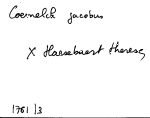 Coernelck jacobus
X Haesebaert Therese
1761 | 3